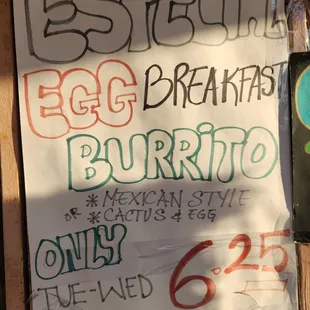 ESPECIAL
EGG BREAKFAST
BURRITO
* MEXICAN STYLE
OR * CACTUS & EGG
ONLY
TUE-WED 6.25